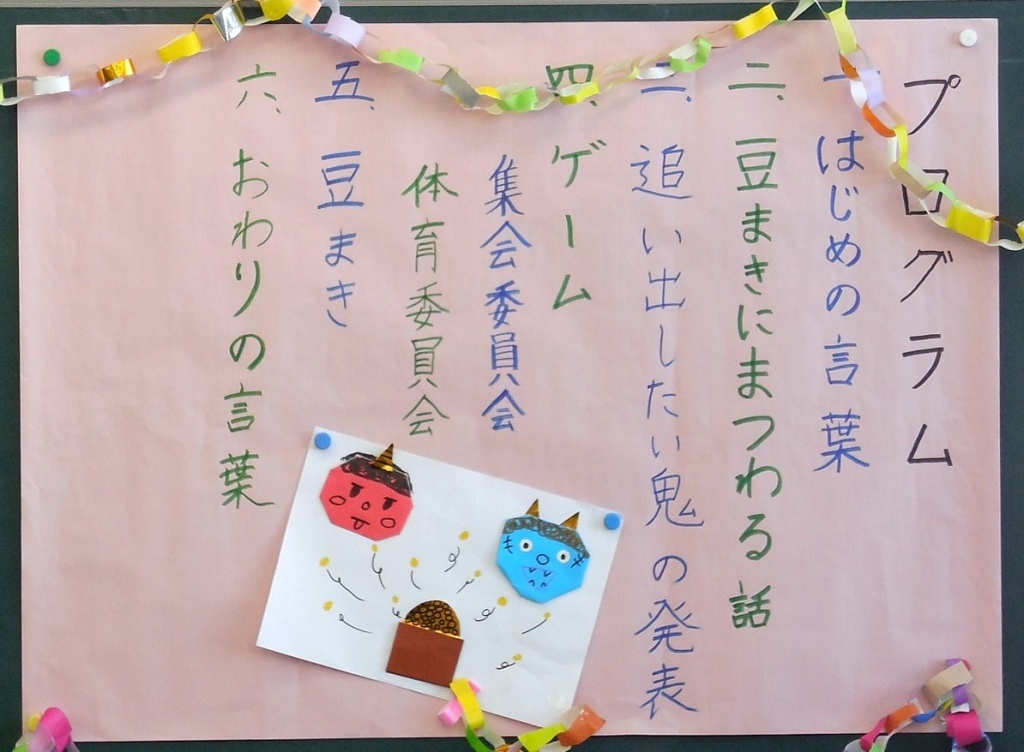 プログラム
一、はじめの言葉
二、豆まきにまつわる話
三、追い出したい鬼の発表
四、ゲーム
集会委員会
体育委員会
五、豆まき
六、おわりの言葉